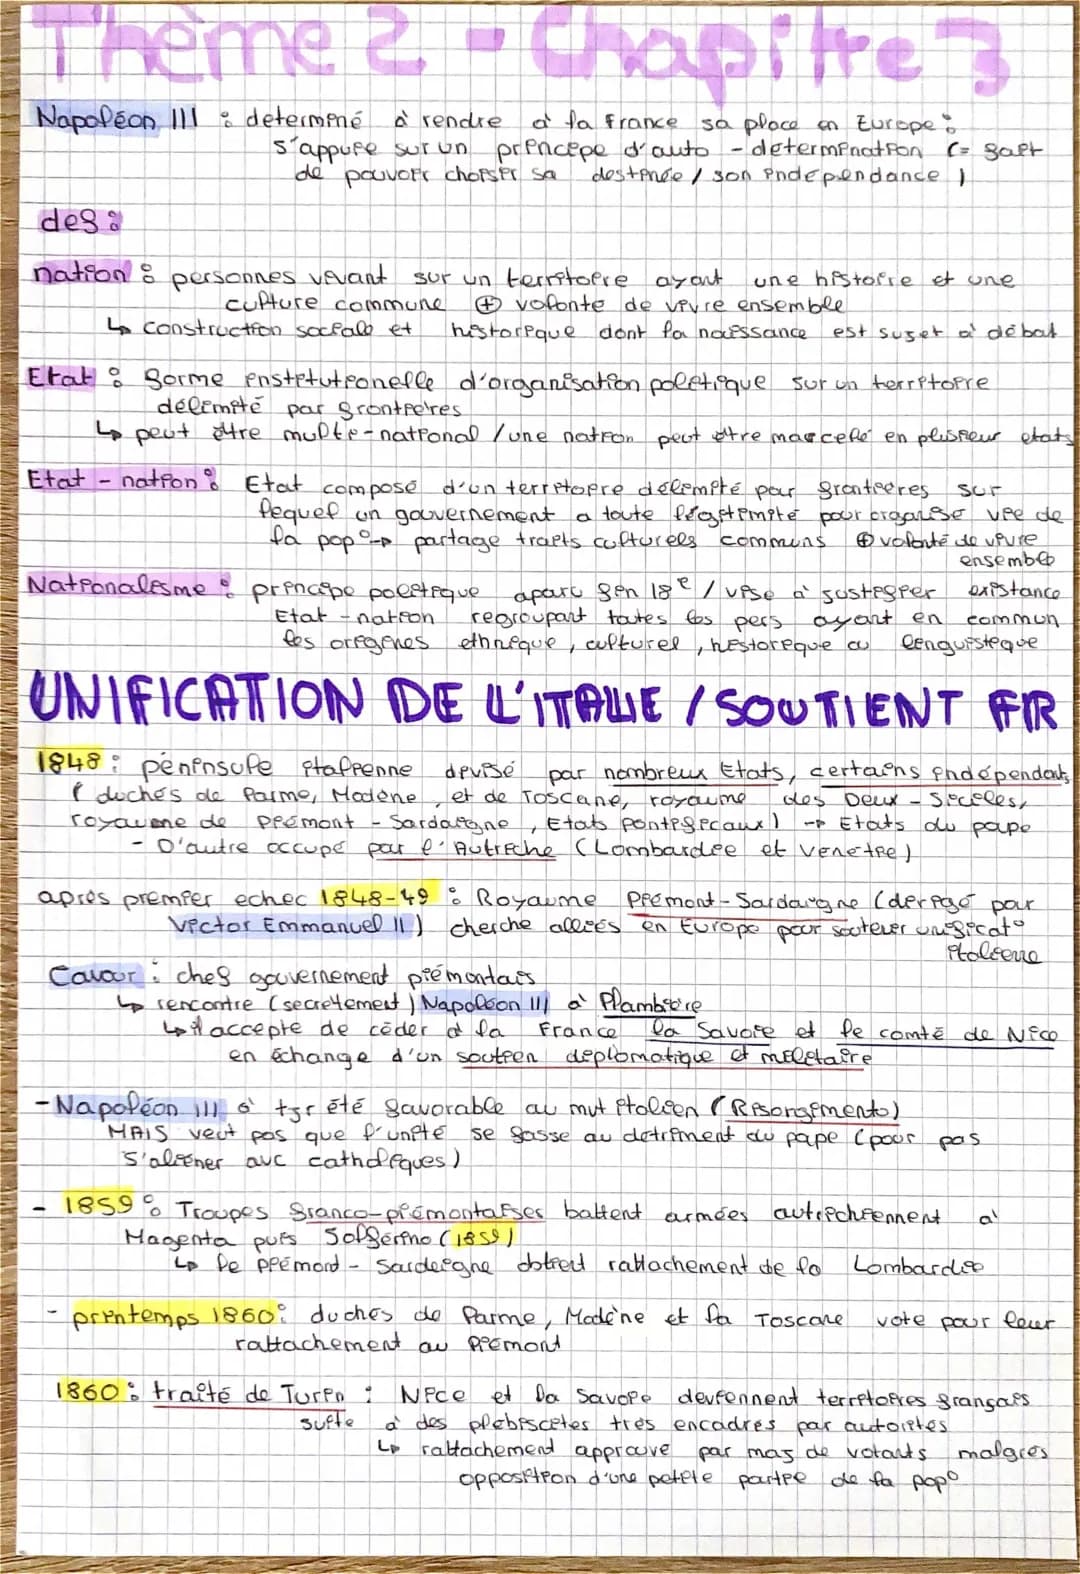 Thème 2 - Chapitre 3
Napoléon III : determiné à rendre à la France sa place en Europe :
s'appuie sur un principe d'auto - determination (= fait
de pouvoir choisir sa destinée / son indépendance )
def :
nation : personnes vivant sur un territoire ayant une histoire et une
culture commune ⊕ volonté de vivre ensemble
↳ construction sociale et historique dont la naissance est sujet à débat
Etat : forme institutionelle d'organisation politique sur un territoire
délimité par frontières
↳ peut être multi-national / une nation peut être morcelé en plisieur etats
Etat - nation : Etat composé d'un territoire délimité par frontières sur
lequel un gouvernement a toute légitimité pour organise vie de
la pop° → partage traits culturels communs ⊕ volonté de vivre
ensemble
Nationalisme : principe politique aparu fin 18e / vise à justifier existance
Etat - nation regroupant toutes les pers ayant en commun
les origines ethnique, culturel, historique ou linguistique
UNIFICATION DE L'ITALIE / SOUTIENT FR
1848 : péninsule italienne divisé par nombreux Etats, certains indépendants
( duchés de Parme, Modène, et de Toscane, royaume des Deux - Siciles,
royaume de Piémont - Sardaigne, Etats pontificaux) → Etats du pape
- D'autre occupé par l'Autriche (Lombardie et Vénétie)
après premier echec 1848-49 : Royaume Piémont - Sardaigne (dirigé par
Victor Emmanuel II) cherche alliés en Europe pour soutenir unificat°
italienne
Cavour : chef gouvernement piémontais
↳ rencontre (secretement) Napoléon III à Plombière
↳ il accepte de céder à la France la Savoie et le comté de Nice
en échange d'un soutien diplomatique et militaire
- Napoléon III à tjr été favorable au mvt italien (Risorgimento)
MAIS veut pas que l'unité se fasse au détriment du pape (pour pas
s'aliéner avc catholiques)
- 1859 : Troupes franco-piémontaises battent armées autrichiennent à
Magenta puis Solférino (1859)
↳ le piémond - Sardeigne obtient rattachement de la Lombardie
- printemps 1860 : duchés de Parme, Modène et la Toscane vote pour leur
rattachement au Piémont
1860 : traité de Turin : Nice et la Savoie deviennent territoires français
suite à des plébiscites très encadrés par autorités
↳ rattachement approuve par maj de votants malgres
opposition d'une petite partie de la pop°